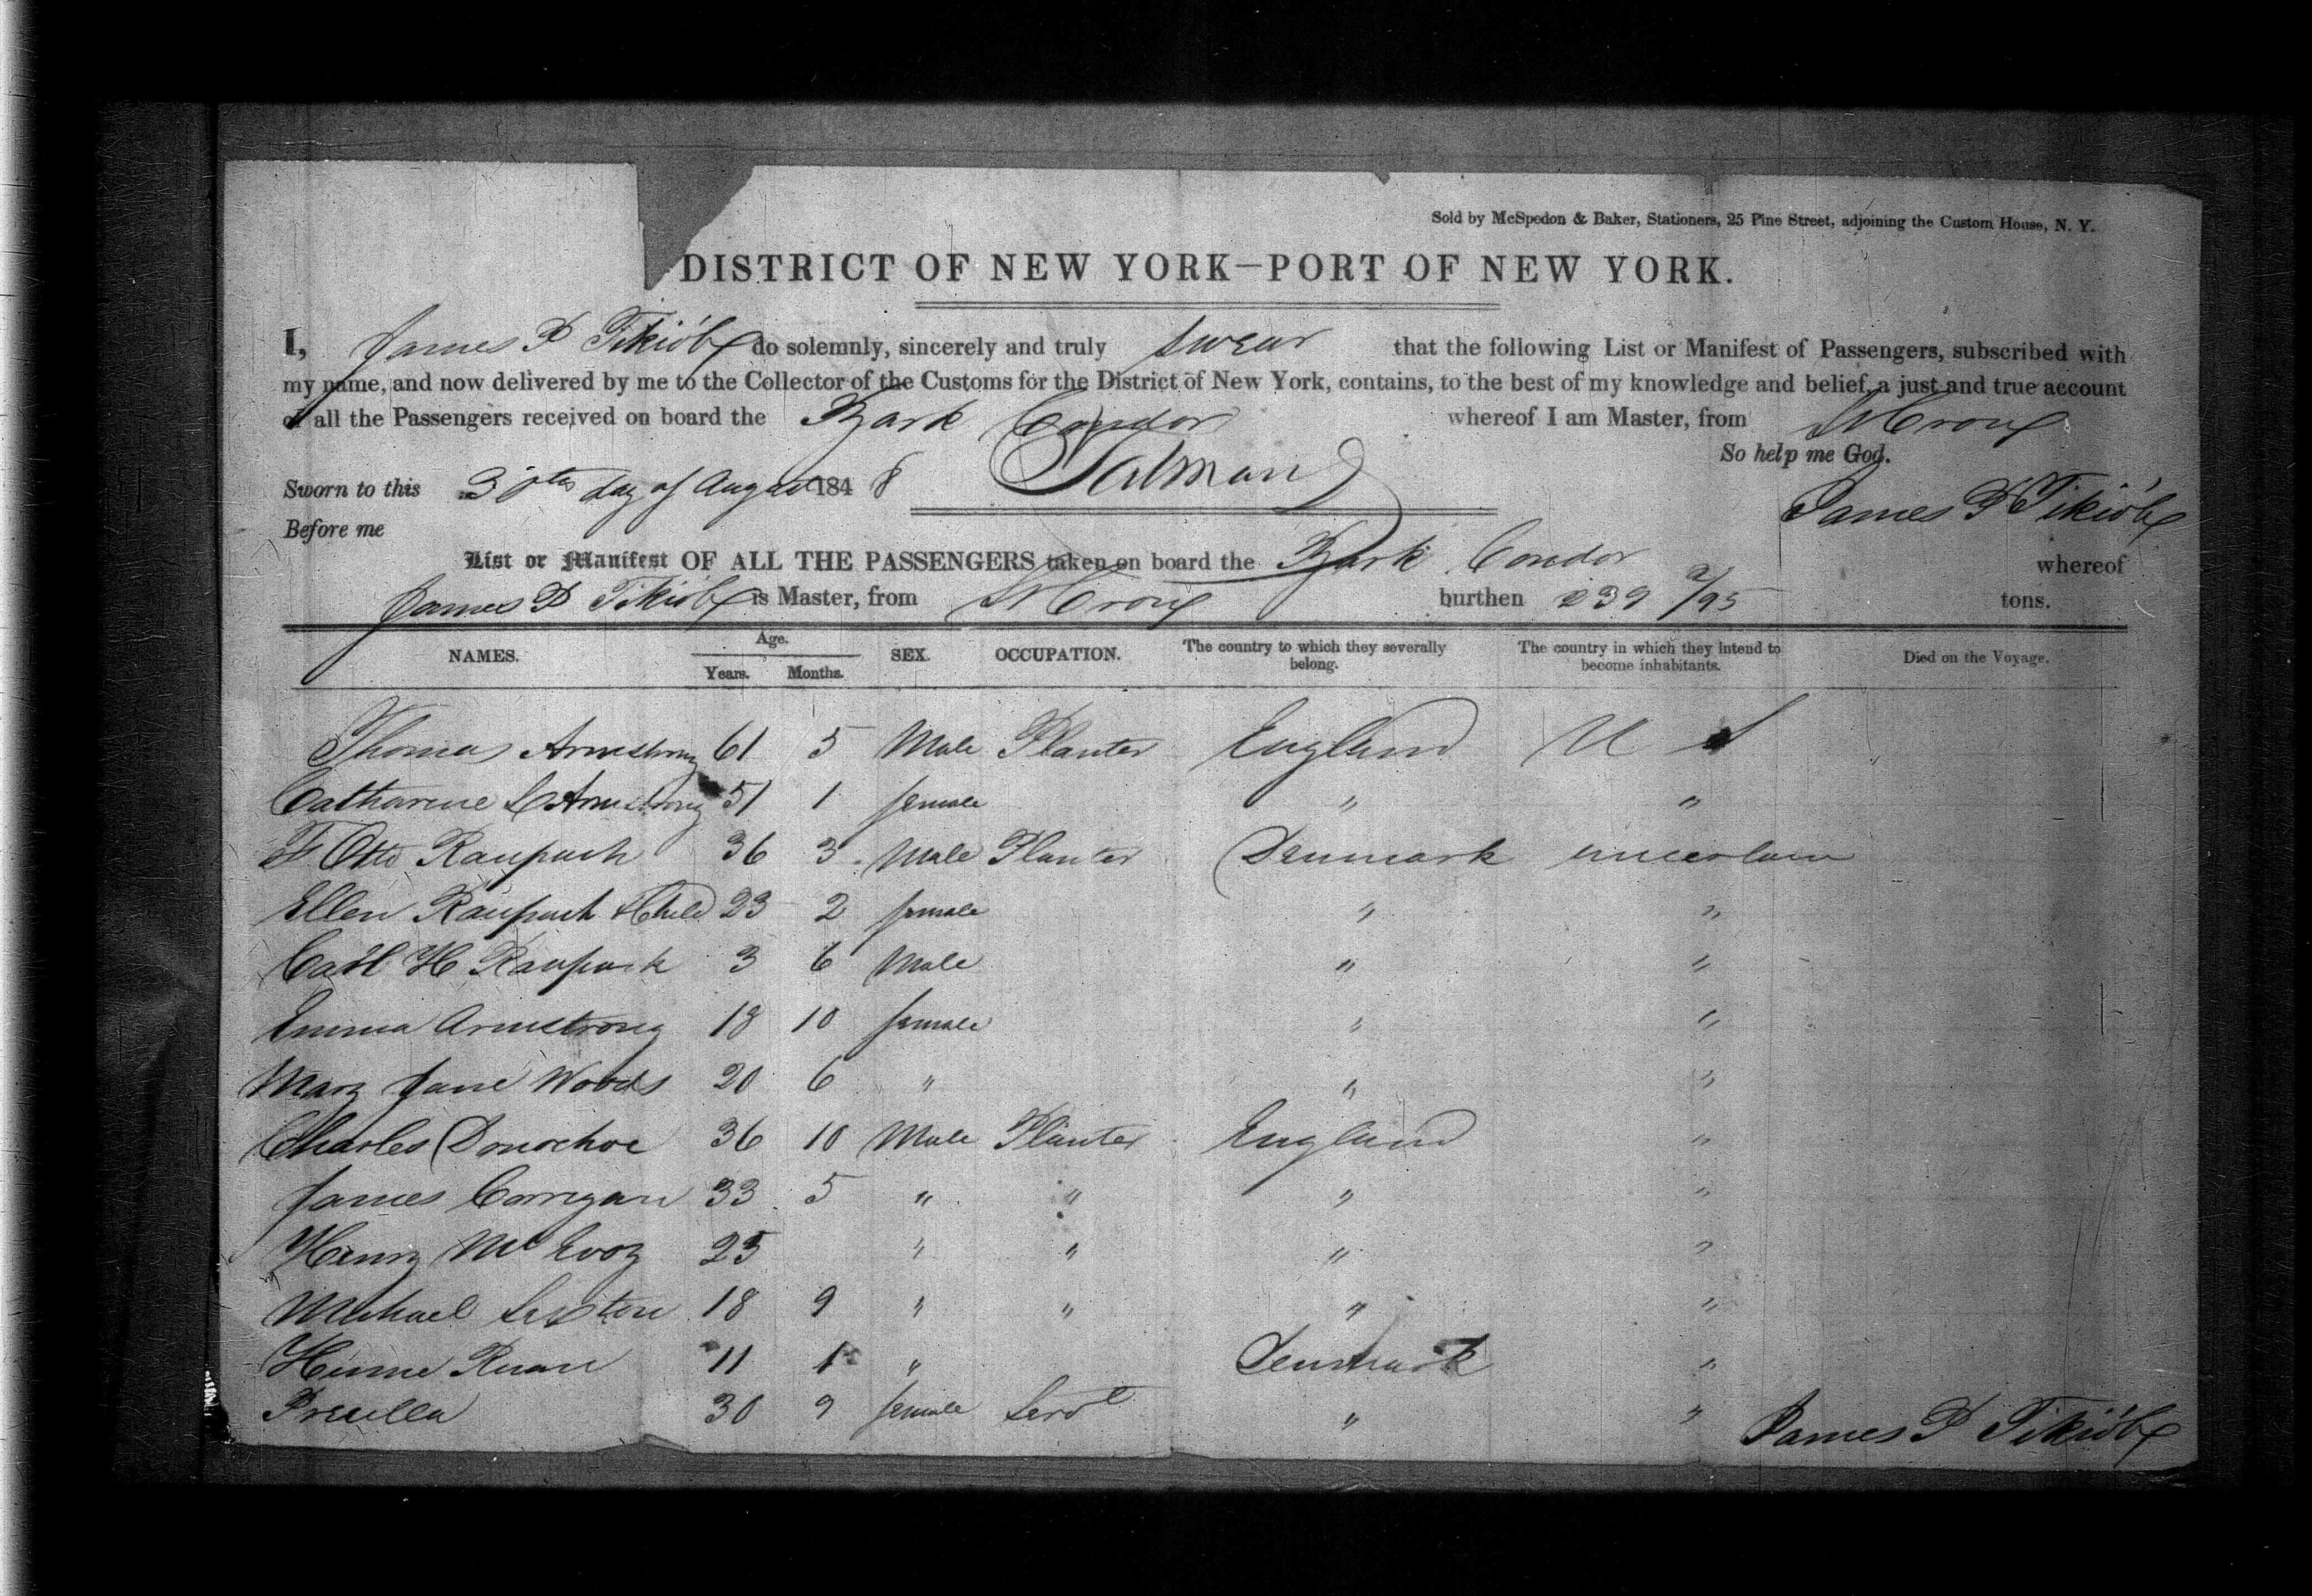 Sold by McSpedon & Baker, Stationers, 25 Pine Street, adjoining the Custom House, N. Y.
DISTRICT OF NEW YORK—PORT OF NEW YORK.
I, James P do solemnly, sincerely and truly swear that the following List or Manifest of Passengers, subscribed with
my name, and now delivered by me to the Collector of the Customs for the District of New York, contains, to the best of my knowledge and belief, a just and true account
of all the Passengers received on board the Bark Condor whereof I am Master, from St Croix
So help me God.
Sworn to this 30th day of August 1848
James P
Before me
List or Manifest OF ALL THE PASSENGERS taken on board the Bark Condor whereof
James P is Master, from St Croix burthen 239 2/95 tons.
NAMES. Age. Years. Months. SEX. OCCUPATION. The country to which they severally belong. The country in which they intend to become inhabitants. Died on the Voyage.
Thomas Armstrong 61 5 Male Planter England U S
Catharine L Armstrong 51 1 female " "
F Otto Raupach 36 3 Male Planter Denmark uncertain
Ellen Raupach & Child 23 2 female " "
Carl H Raupach 3 6 Male " "
Emma Armstrong 18 10 female " "
Mary Jane Woods 20 6 " " "
Charles Donochoe 36 10 Male Planter England "
James Corrigan 33 5 " " " "
Henry McEvoy 25 " " " "
Michael 18 9 " " " "
Ruan 11 1 " Denmark "
Precilla 30 9 female Servt " "
James P